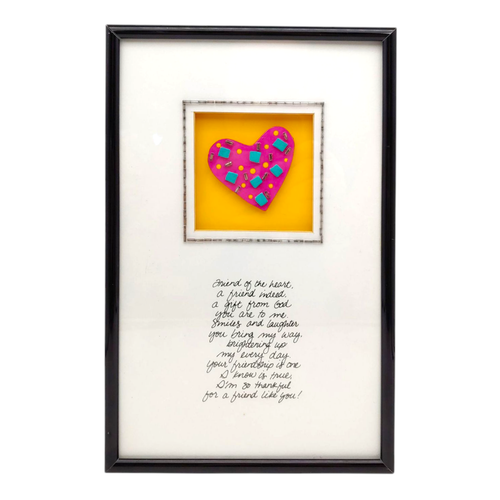 Friend of the heart,
a friend indeed,
a gift from God
you are to me
Smiles and laughter
you bring my way,
brightening up
my every day.
Your friendship is one
I know is true,
I'm so thankful
for a friend like you!